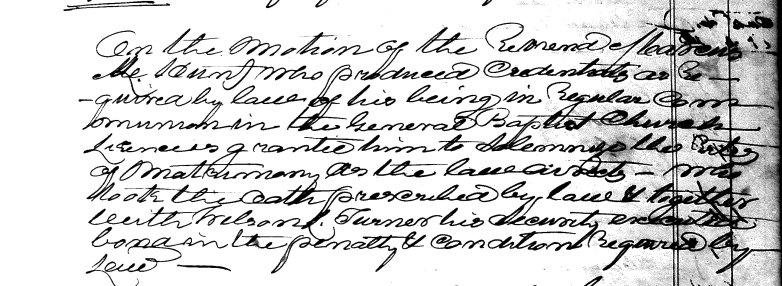 On the Motion of the Reverend Marcus
Mc. who produced Credentials as Re-
-quired by law of his being in Regular Com-
omunion in the General Baptist Church
License is granted him to Solemnize the Rites
of Matrimony as the law directs - who
took the oath prescribed by law & together
with Nelson Turner his security executed
bond in the penalty & condition Required by
Law —